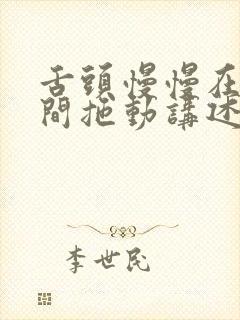 舌頭慢慢在
間拖動講述
李世民